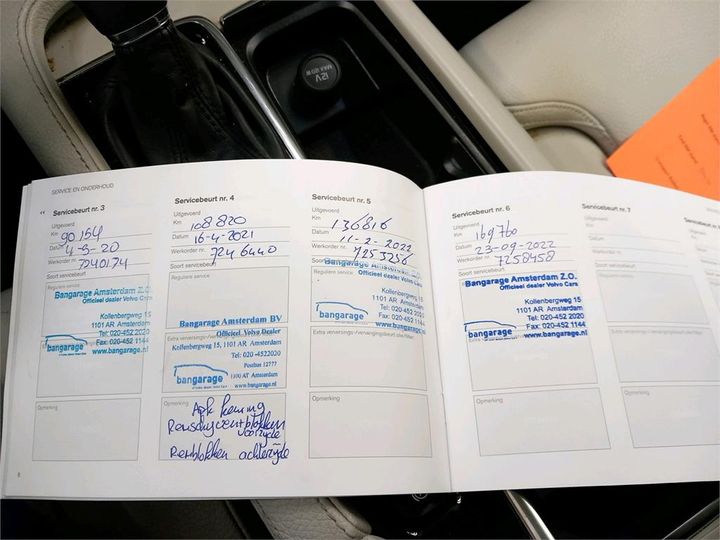 12V
MAX 120W
SERVICE EN ONDERHOUD
Servicebeurt nr. 3
Uitgevoerd
Km 90 154
Datum 4-3-20
Werkorder nr. 7240174
Soort servicebeurt
Reguliere service
Bangarage Amsterdam Z.O.
Officieel dealer Volvo Cars
Kollenbergweg 15
1101 AR Amsterdam
Tel: 020-452 2020
Fax: 020-452 1144
www.bangarage.nl
bangarage
Opmerking
8
Servicebeurt nr. 4
Uitgevoerd
Km 108 820
Datum 16-4-2021
Werkorder nr. 7246440
Soort servicebeurt
Reguliere service
Bangarage Amsterdam BV
Officieel Volvo Dealer
Kollenbergweg 15, 1101 AR Amsterdam
Tel: 020 -4522020
Postbus 12777
1100 AT Amsterdam
www.bangarage.nl
bangarage
Opmerking
Apk keuring
voorzijde
Remblokken achterzijde
Servicebeurt nr. 5
Uitgevoerd
Km 136816
Datum 11-2-2022
Werkorder nr. 7253256
Soort servicebeurt
Reguliere service
Bangarage Amsterdam Z.O.
Officieel dealer Volvo Cars
Kollenbergweg 15
1101 AR Amsterdam
Tel: 020-452 2020
Fax: 020-452 1144
www.bangarage.nl
bangarage
Opmerking
Servicebeurt nr. 6
Uitgevoerd
Km 169760
Datum 23-09-2022
Werkorder nr. 7258458
Soort servicebeurt
Bangarage Amsterdam Z.O.
Officieel dealer Volvo Cars
Kollenbergweg 15
1101 AR Amsterdam
Tel: 020-452 2020
Fax: 020-452 1144
www.bangarage.nl
bangarage
Opmerking
Servicebeurt nr. 7
Uitgevoerd
Km
Datum
Werkorder nr.
Soort servicebeurt
Reguliere service
Opmerking